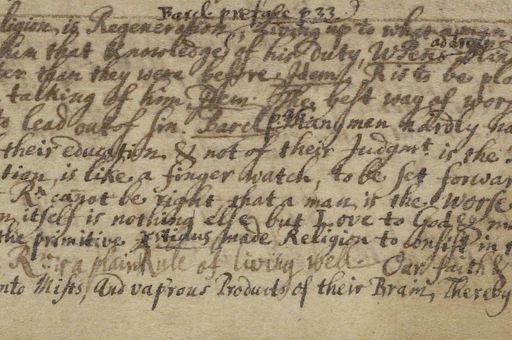 Barck preface p33
ligion is Regeneration, living up to what a man
him that knowledge of his Duty, When
adoration
ter than they were before Idem. R is to be plo
talking of him Idem The best way of wors
to lead out of sin. Barck p33 many man hardly ha
their education & not of their Judgmt is the
tion is like a finger watch, to be set forwar
Rn cannot be right that a man is the worse
n itself is nothing else but Love to God &
the primitive made Religion to consist in
Rn is a plain Rule of living well. Our faith &
into Mists, And vaprous Products of their Brain, Thereby